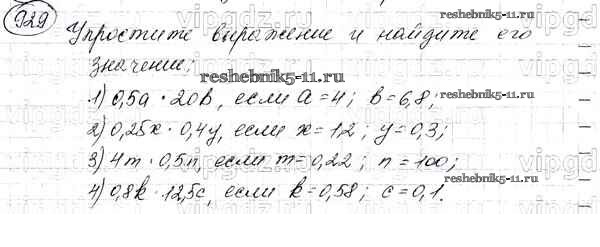 929
Упростите выражение и найдите его
значение:
1) 0,5a · 20b, если a = 4; b = 6,8;
2) 0,25x · 0,4y, если x = 12; y = 0,3;
3) 4m · 0,5n, если m = 0,22; n = 100;
4) 0,8k · 12,5c, если k = 0,58; c = 0,1.
reshebnik5-11.ru
reshebnik5-11.ru
reshebnik5-11.ru
reshebnik5-11.ru